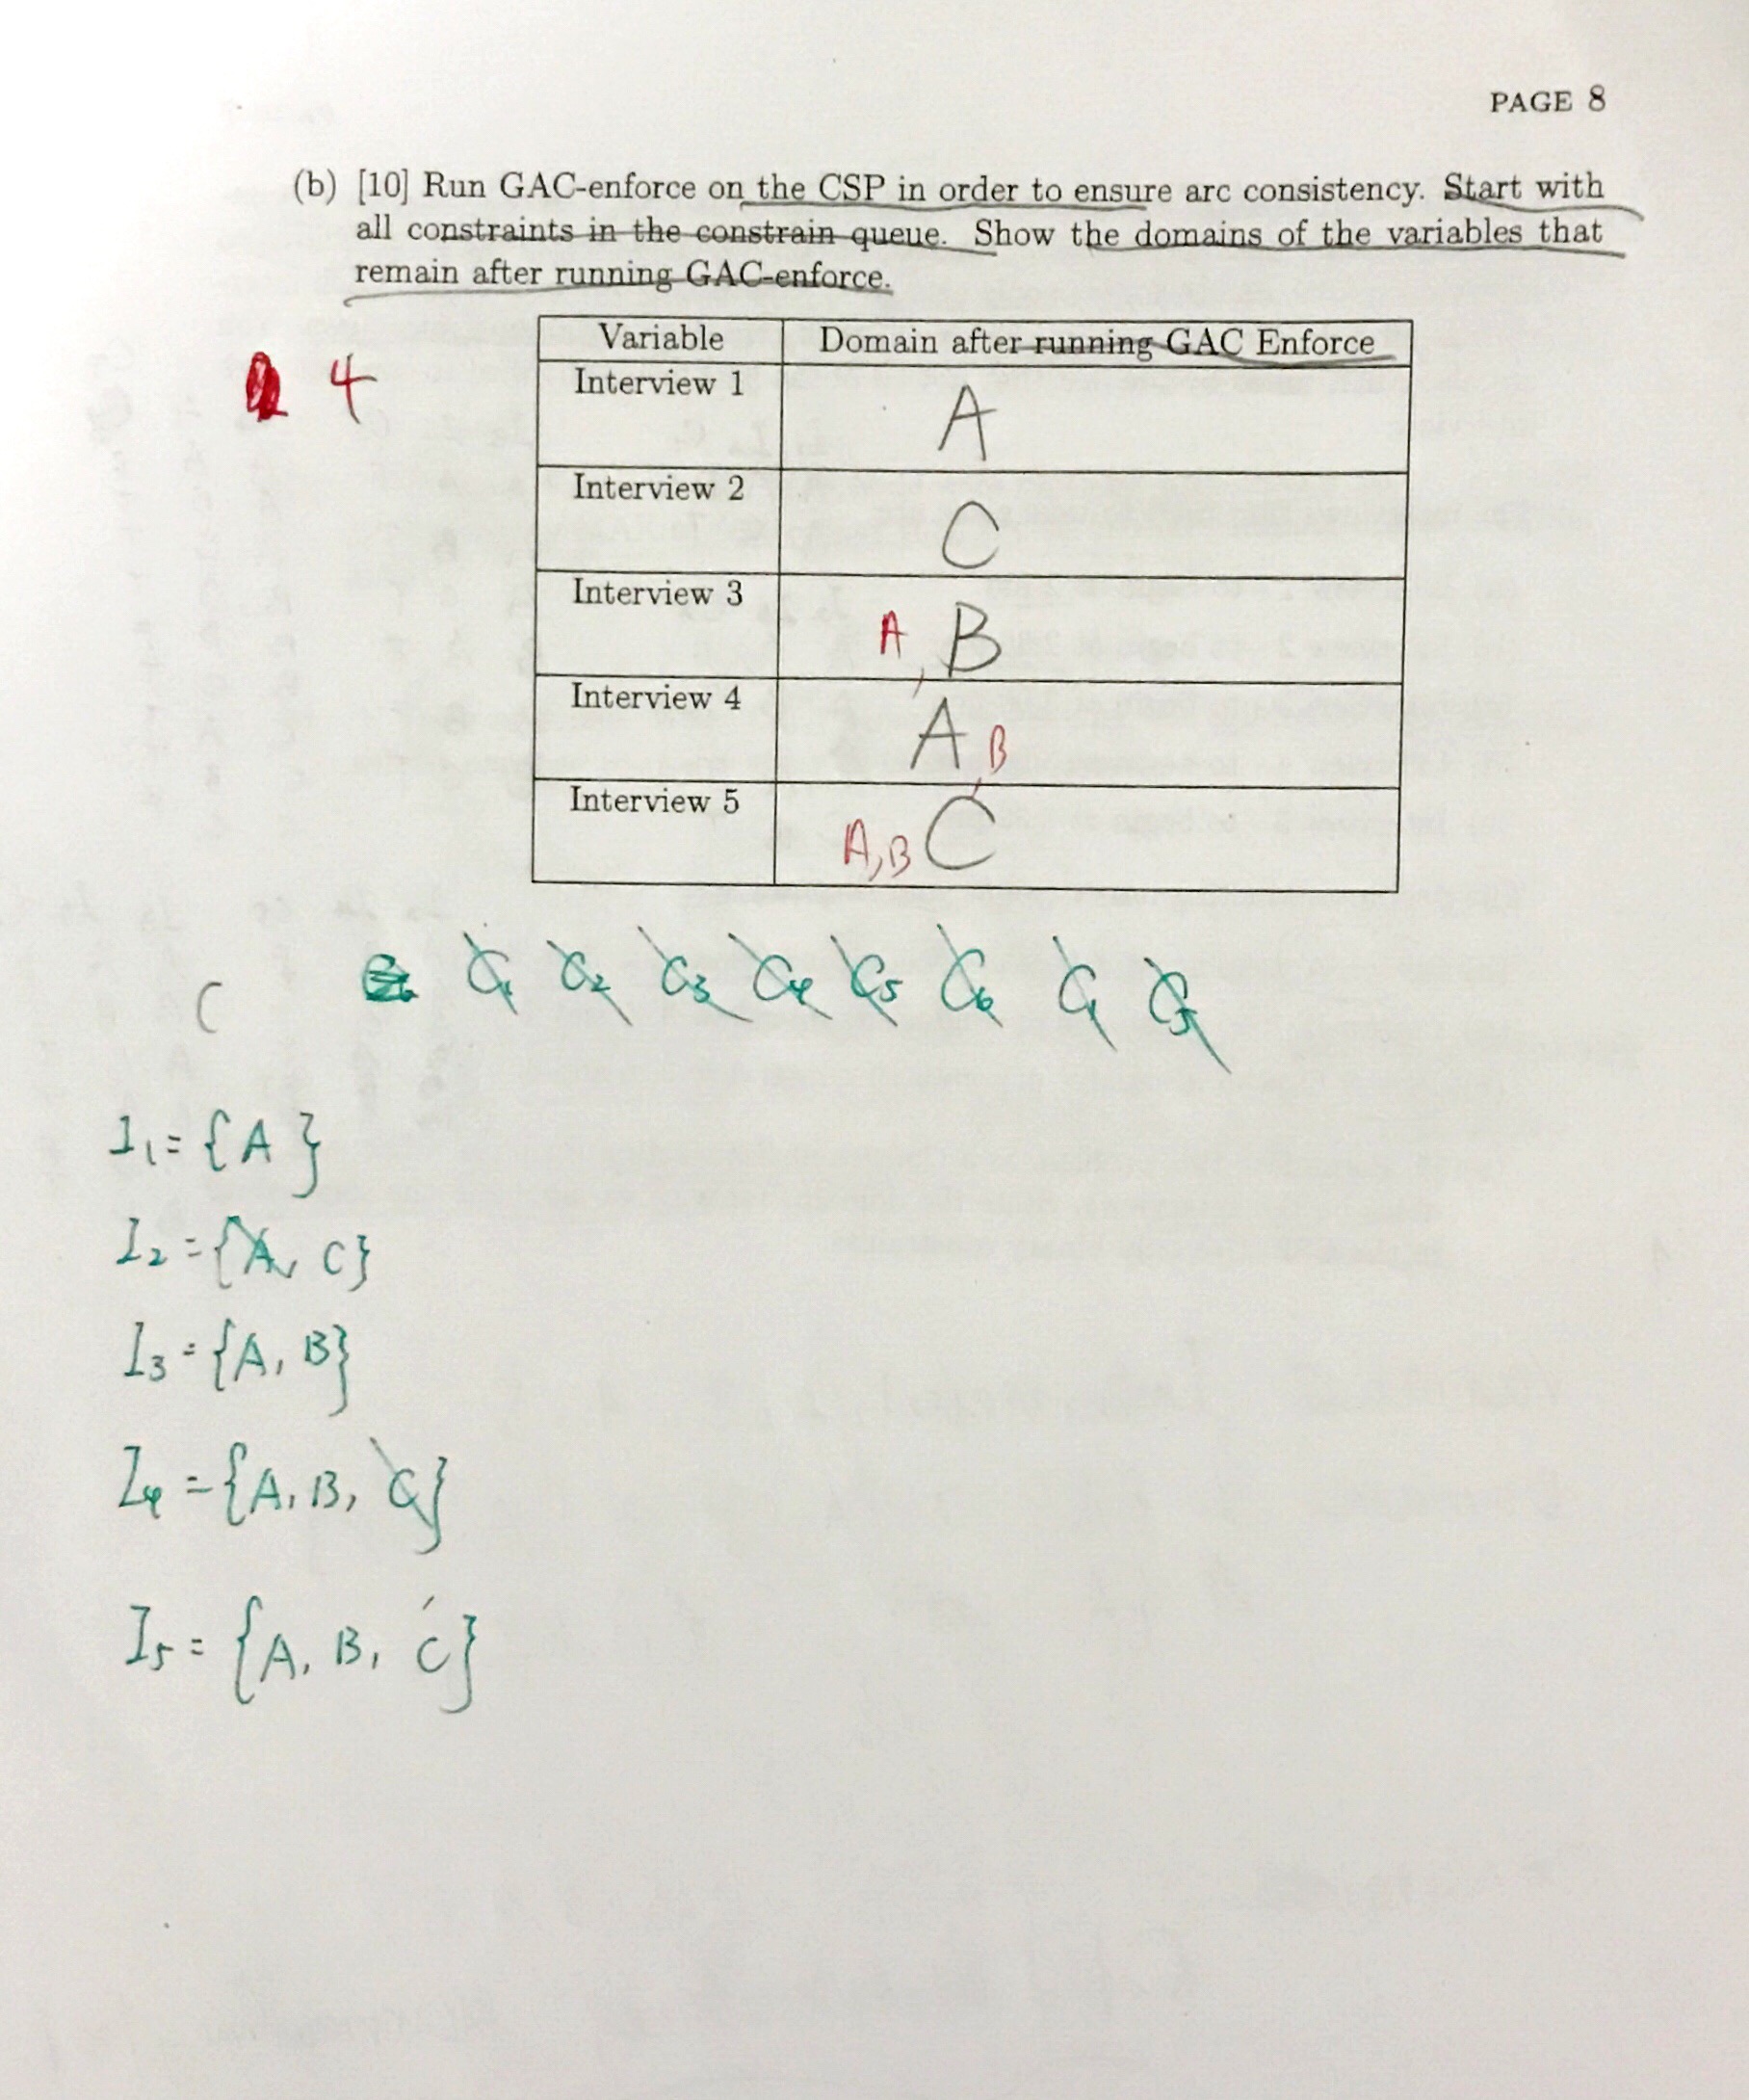 PAGE 8
(b) [10] Run GAC-enforce on the CSP in order to ensure arc consistency. Start with
all constraints in the constrain queue. Show the domains of the variables that
remain after running GAC-enforce.
4
Variable Domain after running GAC Enforce
Interview 1 A
Interview 2 C
Interview 3 A, B
Interview 4 A, B
Interview 5 A, B C
C C1 C2 C3 C4 C5 C6 C1 C5
I1 = {A}
I2 = {A, C}
I3 = {A, B}
I4 = {A, B, C}
I5 = {A, B, C}